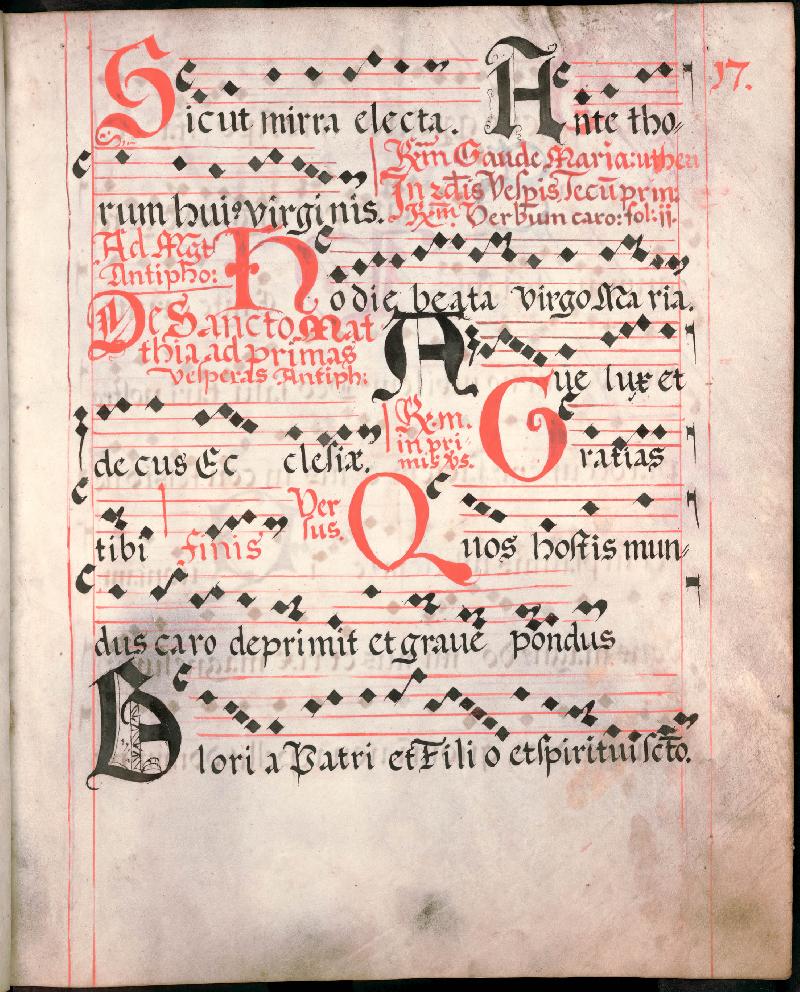 17.
Sicut mirra electa. Ante tho-
rum hui9 virginis. R̃m Gaude Maria: ut heri
In 2dis Vesp̃is Secu prim:
R̃m. Verbum caro: fol: ij.
Ad Mgt
Antipho: Hodie beata virgo Maria.
De Sancto Mat
thia ad primas
vesperas Antiph: Aue lux et
decus Ec clesiæ. R̃x.m.
in pri-
mis vs. Gratias
tibi finis Ver
sus. Quos hostis mun-
dus caro deprimit et graue pondus
Gloria Patri et Filio et spiritui scto.